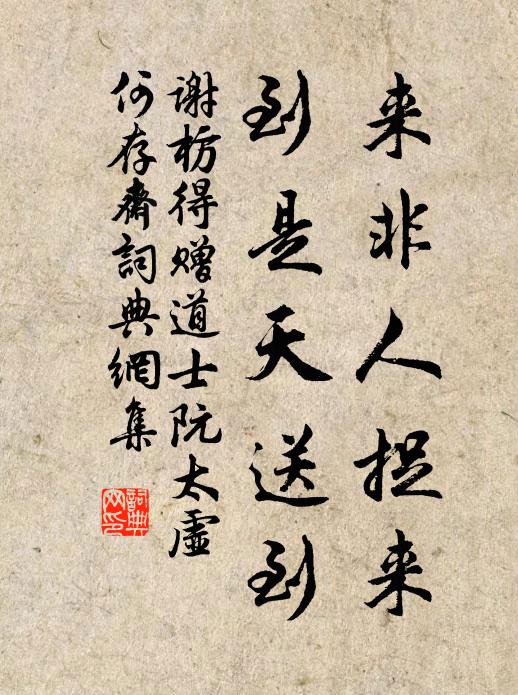 来非人捉来
到是天送到
谢枋得赠道士阮太虚
何存斋詞典網集
詞典网印